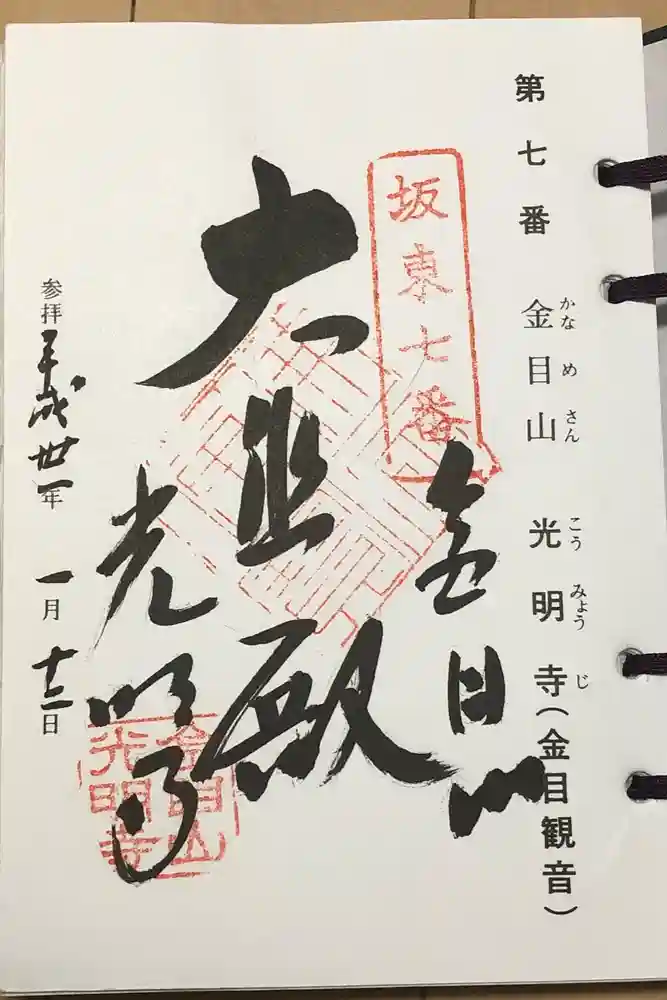 第七番 金目山 光明寺(金目観音)
かなめさん こうみょうじ
坂東七番
金目山
大悲殿
光明寺
金目山
光明寺
参拝 平成卅一年 一月 日